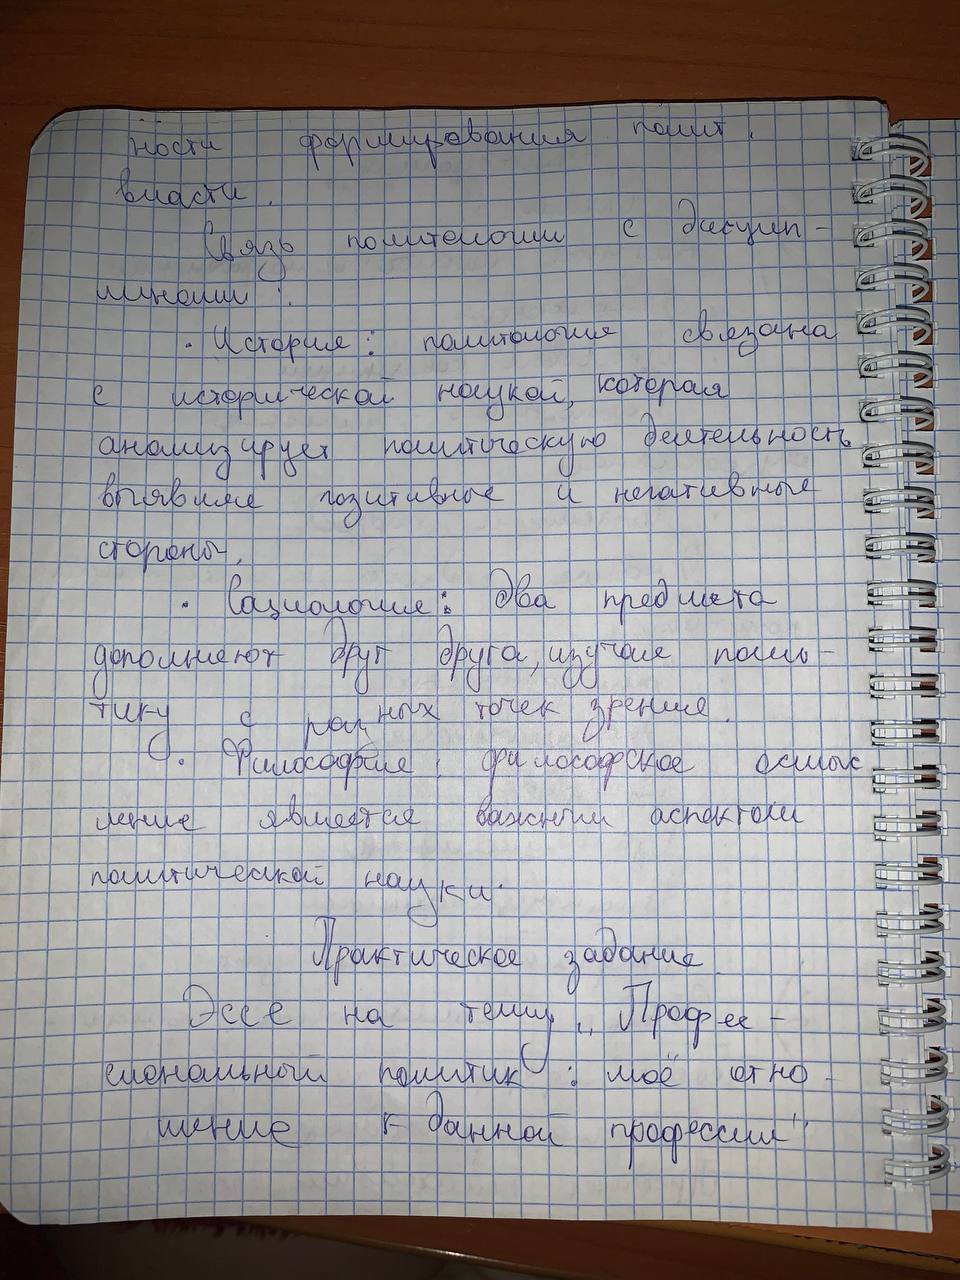 ности формирования полит.
власти.
Связь политологии с дисцип-
линами:
· История: политология связана
с исторической наукой, которая
анализирует политическую деятельность,
выявляя позитивные и негативные
стороны.
· Социология: Два предмета
дополняют друг друга, изучая поли-
тику с разных точек зрения.
· Философия: философское осмыс
ление является важным аспектом
политической науки.
Практическое задание
Эссе на тему „Профес-
сиональный политик: моё отно-
шение к данной профессии"